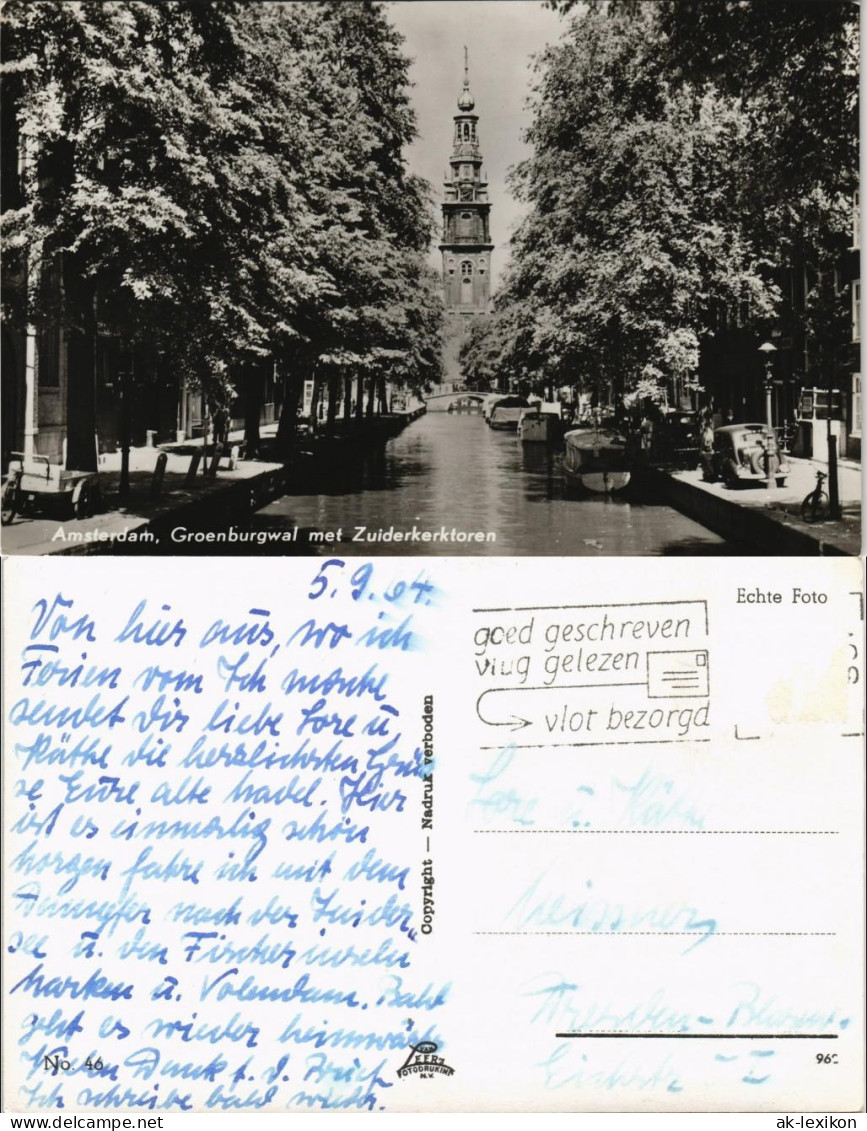 Amsterdam, Groenburgwal met Zuiderkerktoren
5.9.64.
Von hier aus, wo ich
Ferien vom Ich mache
sendet dir liebe Lore u.
Käthe die herzlichsten Grüs
se Eure alte Hadel. Hier
ist es einmalig schön
morgen fahre ich mit dem
Dampfer nach der Zuider
see u. den Fischerinseln
Marken u. Volendam. Bald
geht es wieder heimwärts
Vielen Dank f. d. Brief
Ich schreibe bald wieder.
No. 46
Copyright — Nadruk verboden
VAN LEER'S
FOTODRUKINR
N.V.
goed geschreven
vlug gelezen
vlot bezorgd
Echte Foto
Lore u. Käthe
Meissner
Dresden-
962
© ak-ansichtskarten.de
ak-lexikon